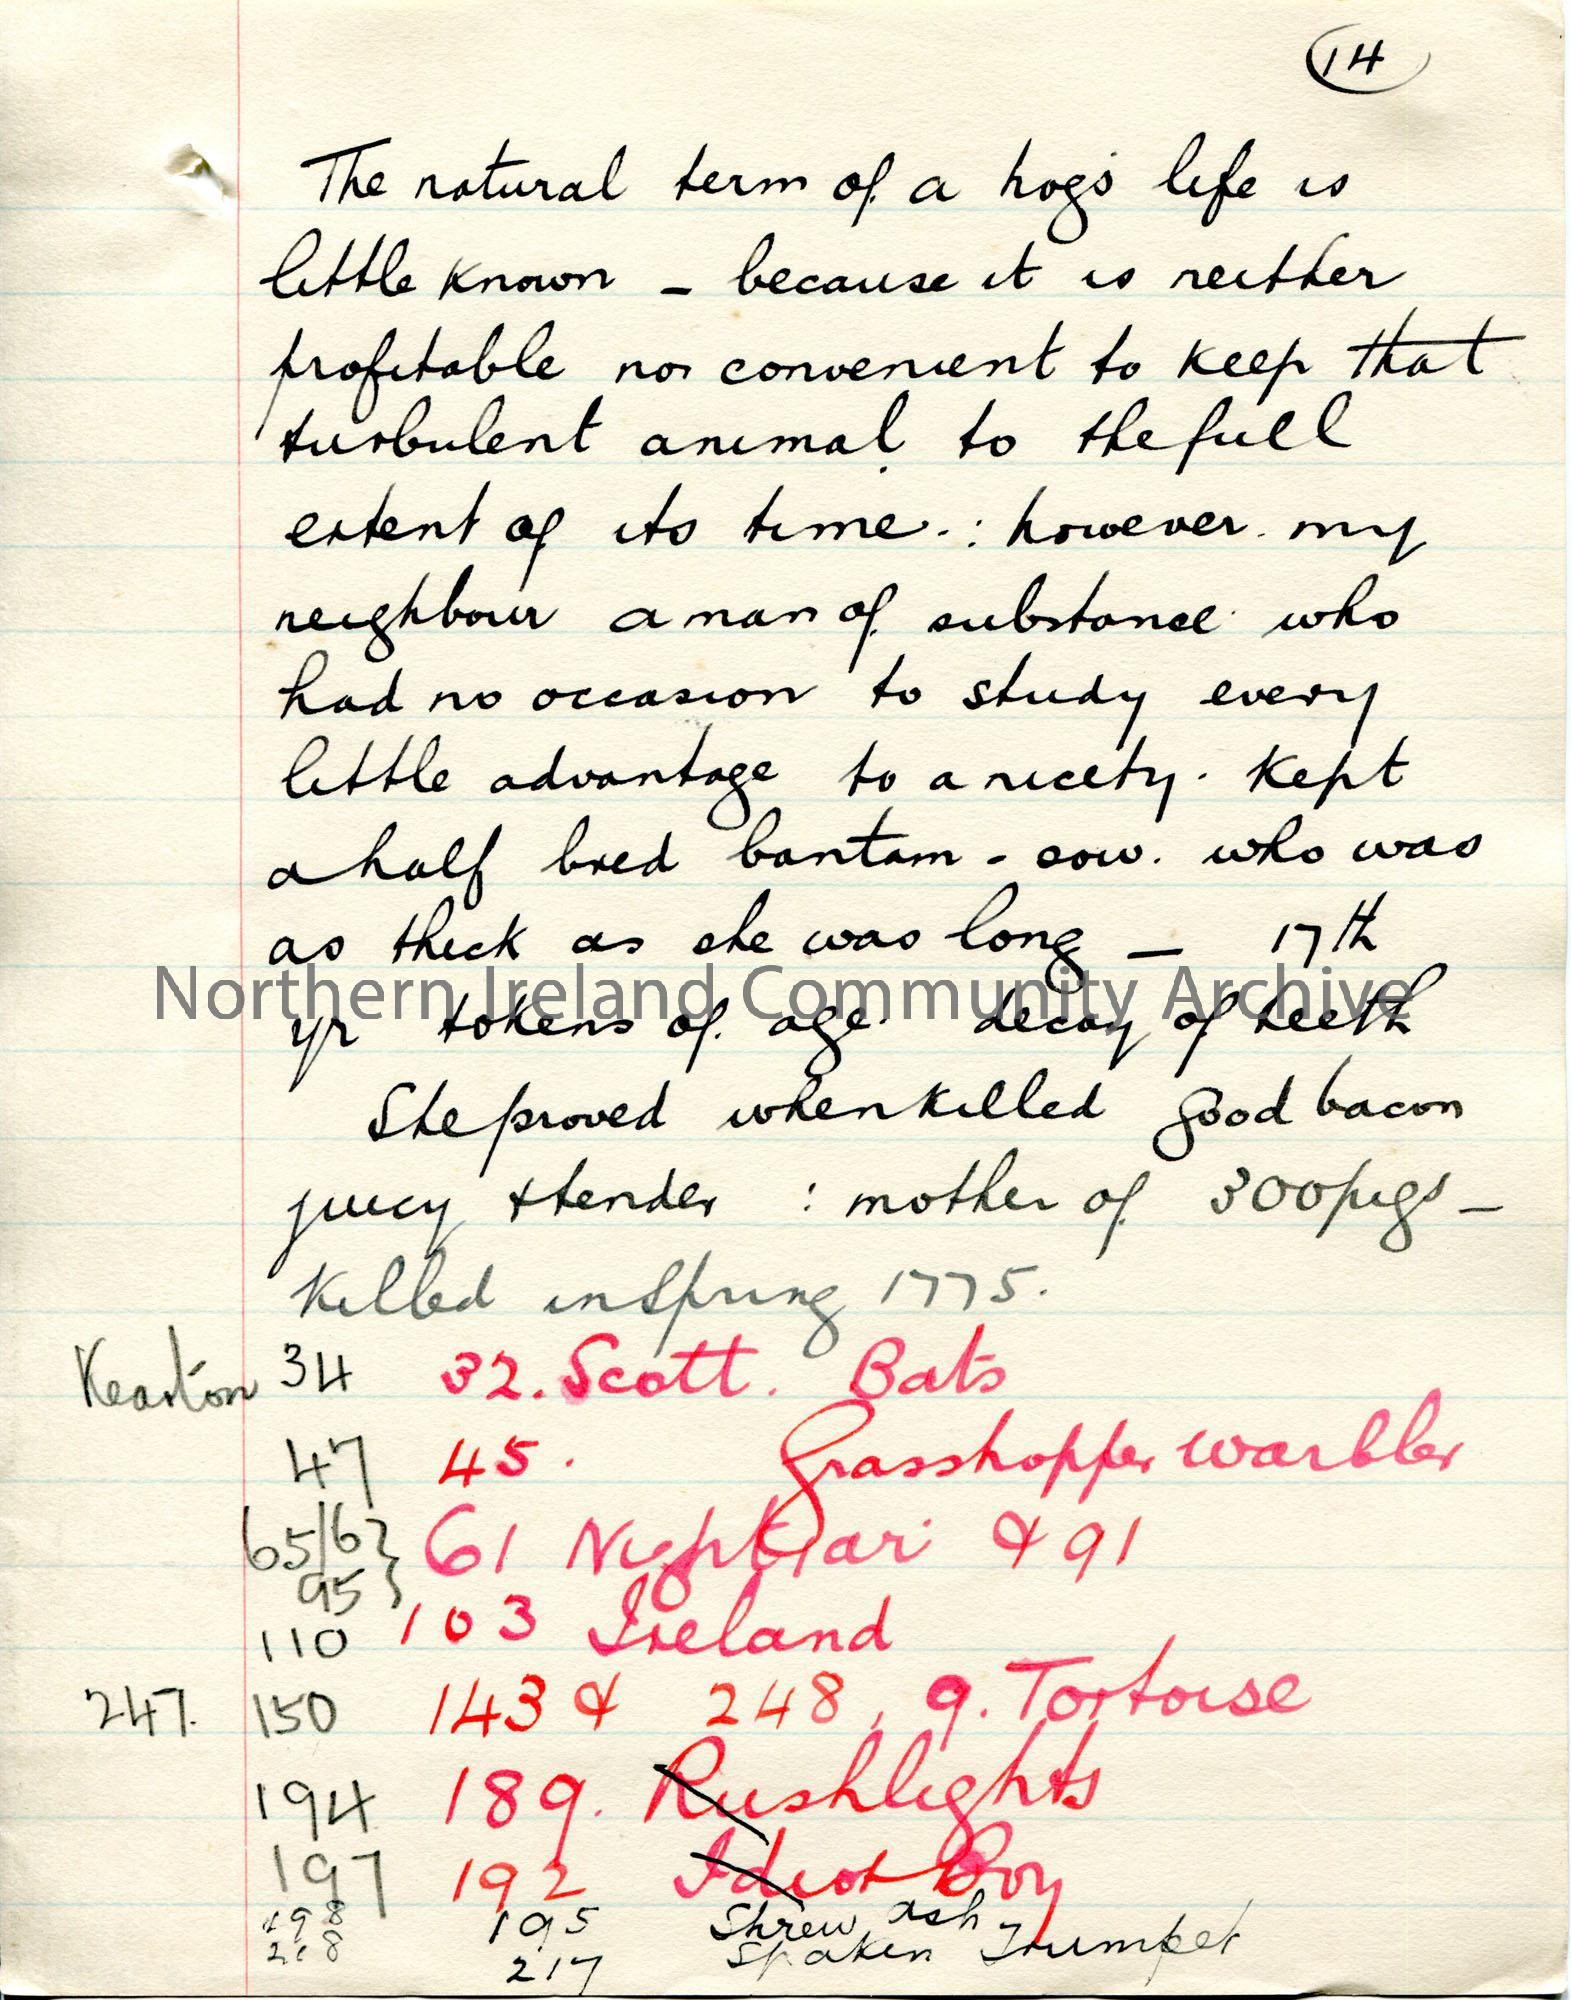 14
The natural term of a hogs life is
little known - because it is neither
profitable nor convenient to keep that
turbulent animal to the full
extent of its time. : however. my
neighbour a man of substance who
had no occasion to study every
little advantage to a nicety. Kept
a half bred bantam - sow. who was
as thick as she was long — 17th
Northern Ireland Community Archive
yr tokens of age. decay of teeth
She proved when killed good bacon
juicy & tender : mother of 300 pigs -
Killed in Spring 1775.
Kearton 34 32. Scott. Bats
47 45. Grasshopper warbler
65/6 } 61 Nightjar & 91
95 }
110 103 Ireland
247. 150 143 & 248, 9. Tortoise
194 189. Rushlights
197 192 Idiot Boy
198 195 Shrew ash
217 Trumpet